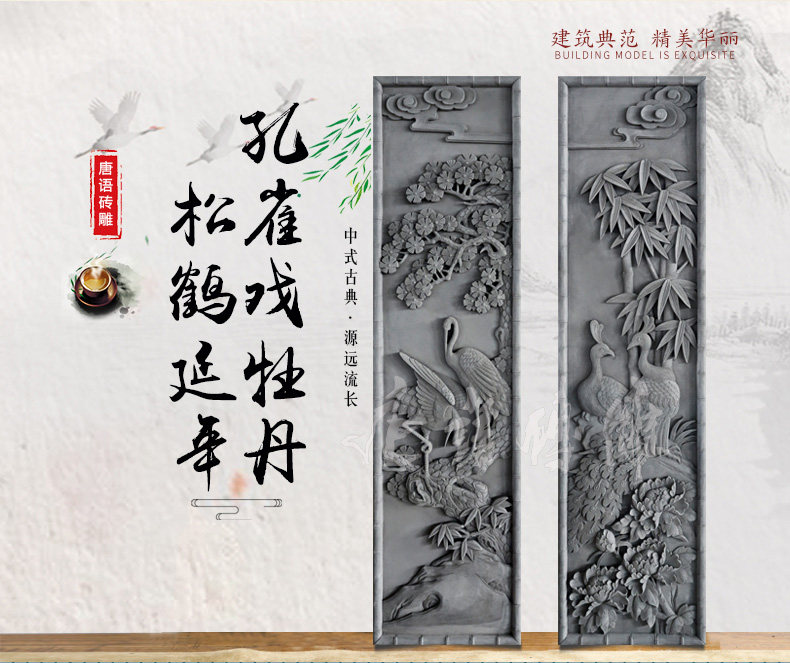 建筑典范 精美华丽
BUILDING MODEL IS EXQUISITE
孔雀戏牡丹
松鹤延年
中式古典·源远流长
唐语砖雕
唐语砖雕